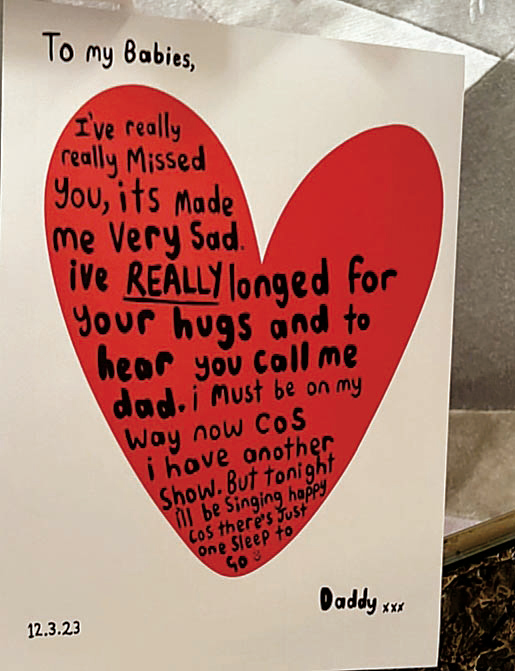 To my Babies,
I've really
really Missed
You, its Made
me Very Sad.
ive REALLY longed for
your hugs and to
hear you call me
dad. i Must be on my
Way now Cos
i have another
Show. But tonight
I'll be Singing happy
Cos there's Just
one Sleep to
Go
Daddy xxx
12.3.23